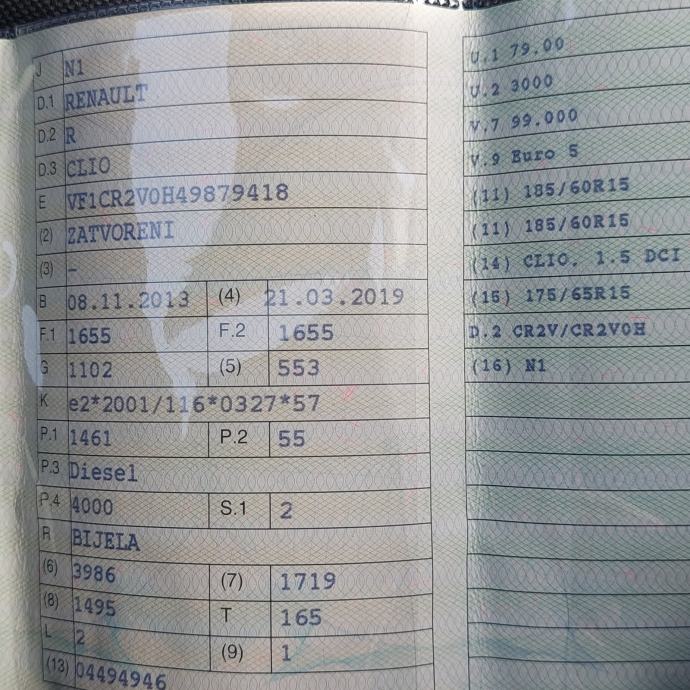 J N1
D.1 RENAULT
D.2 R
D.3 CLIO
E VF1CR2V0H49879418
(2) ZATVORENI
(3) –
B 08.11.2013 (4) 21.03.2019
F.1 1655 F.2 1655
G 1102 (5) 553
K e2*2001/116*0327*57
P.1 1461 P.2 55
P.3 Diesel
P.4 4000 S.1 2
R BIJELA
(6) 3986 (7) 1719
(8) 1495 T 165
L 2 (9) 1
(13) 04494946
U.1 79.00
U.2 3000
V.7 99.000
V.9 Euro 5
(11) 185/60R15
(11) 185/60R15
(14) CLIO. 1.5 DCI
(15) 175/65R15
D.2 CR2V/CR2V0H
(16) N1